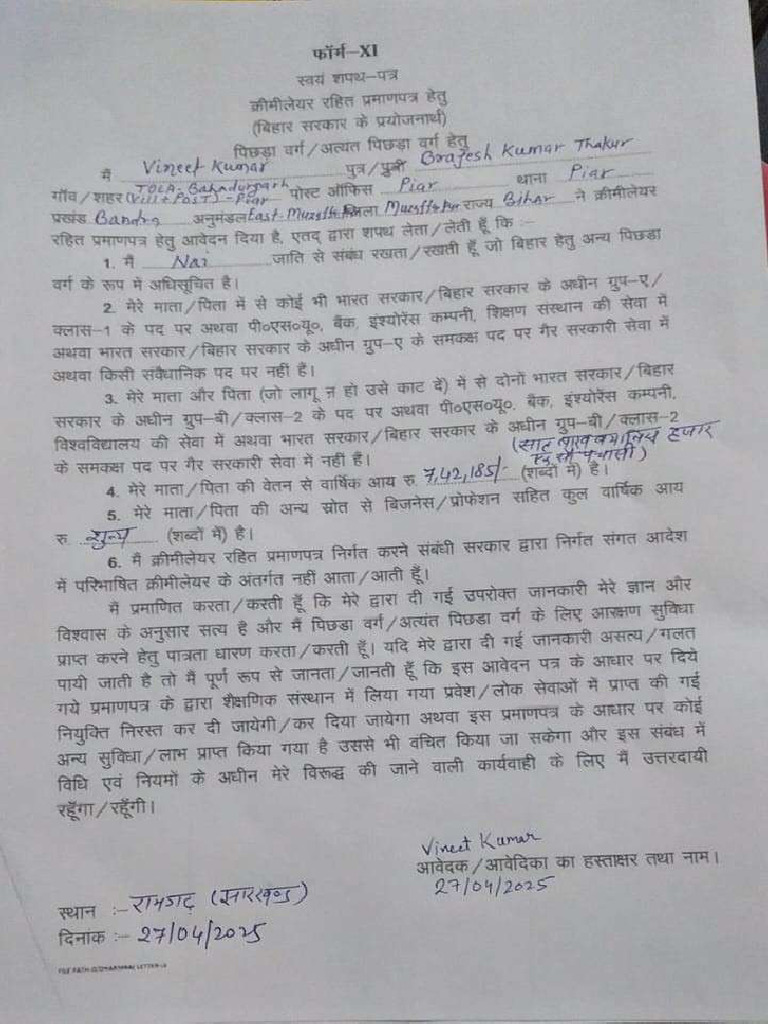 फॉर्म–XI
स्वयं शपथ–पत्र
क्रीमीलेयर रहित प्रमाणपत्र हेतु
(बिहार सरकार के प्रयोजनार्थ)
पिछड़ा वर्ग/अत्यंत पिछड़ा वर्ग हेतु
मैं Vineet Kumar पुत्र/पुत्री Brajesh Kumar Thakur
गाँव/शहर TOLA-Bahadurpur (Vill+POST)-Piar पोस्ट ऑफिस Piar थाना Piar
प्रखंड Bandra अनुमंडल East-Muzaff जिला Muzaff राज्य Bihar ने क्रीमीलेयर
रहित प्रमाणपत्र हेतु आवेदन दिया है, एतद् द्वारा शपथ लेता/लेती हूँ कि :–
1. मैं Nai जाति से संबंध रखता/रखती हूँ जो बिहार हेतु अन्य पिछड़ा
वर्ग के रूप में अधिसूचित है।
2. मेरे माता/पिता में से कोई भी भारत सरकार/बिहार सरकार के अधीन ग्रुप–ए/
क्लास–1 के पद पर अथवा पी०एस०यू०, बैंक, इंश्योरेंस कम्पनी, शिक्षण संस्थान की सेवा में
अथवा भारत सरकार/बिहार सरकार के अधीन ग्रुप–ए के समकक्ष पद पर गैर सरकारी सेवा में
अथवा किसी संवैधानिक पद पर नहीं हैं।
3. मेरे माता और पिता (जो लागू न हो उसे काट दें) में से दोनों भारत सरकार/बिहार
सरकार के अधीन ग्रुप–बी/क्लास–2 के पद पर अथवा पी०एस०यू०, बैंक, इंश्योरेंस कम्पनी,
विश्वविद्यालय की सेवा में अथवा भारत सरकार/बिहार सरकार के अधीन ग्रुप–बी/क्लास–2
के समकक्ष पद पर गैर सरकारी सेवा में नहीं है।
(सात लाख बयालिस हजार
एक सौ पचासी)
4. मेरे माता/पिता की वेतन से वार्षिक आय रु. 7,42,185/- (शब्दों में) है।
5. मेरे माता/पिता की अन्य स्रोत से बिजनेस/प्रोफेशन सहित कुल वार्षिक आय
रु शुन्य (शब्दों में) है।
6. मैं क्रीमीलेयर रहित प्रमाणपत्र निर्गत करने संबंधी सरकार द्वारा निर्गत संगत आदेश
में परिभाषित क्रीमीलेयर के अंतर्गत नहीं आता/आती हूँ।
मैं प्रमाणित करता/करती हूँ कि मेरे द्वारा दी गई उपरोक्त जानकारी मेरे ज्ञान और
विश्वास के अनुसार सत्य है और मैं पिछड़ा वर्ग/अत्यंत पिछड़ा वर्ग के लिए आरक्षण सुविधा
प्राप्त करने हेतु पात्रता धारण करता/करती हूँ। यदि मेरे द्वारा दी गई जानकारी असत्य/गलत
पायी जाती है तो मैं पूर्ण रूप से जानता/जानती हूँ कि इस आवेदन पत्र के आधार पर दिये
गये प्रमाणपत्र के द्वारा शैक्षणिक संस्थान में लिया गया प्रवेश/लोक सेवाओं में प्राप्त की गई
नियुक्ति निरस्त कर दी जायेगी/कर दिया जायेगा अथवा इस प्रमाणपत्र के आधार पर कोई
अन्य सुविधा/लाभ प्राप्त किया गया है उससे भी वंचित किया जा सकेगा और इस संबंध में
विधि एवं नियमों के अधीन मेरे विरूद्ध की जाने वाली कार्यवाही के लिए मैं उत्तरदायी
रहूँगा/रहूँगी।
Vineet Kumar
आवेदक/आवेदिका का हस्ताक्षर तथा नाम।
27/04/2025
स्थान :– रामगढ़ (झारखण्ड)
दिनांक :– 27/04/2025